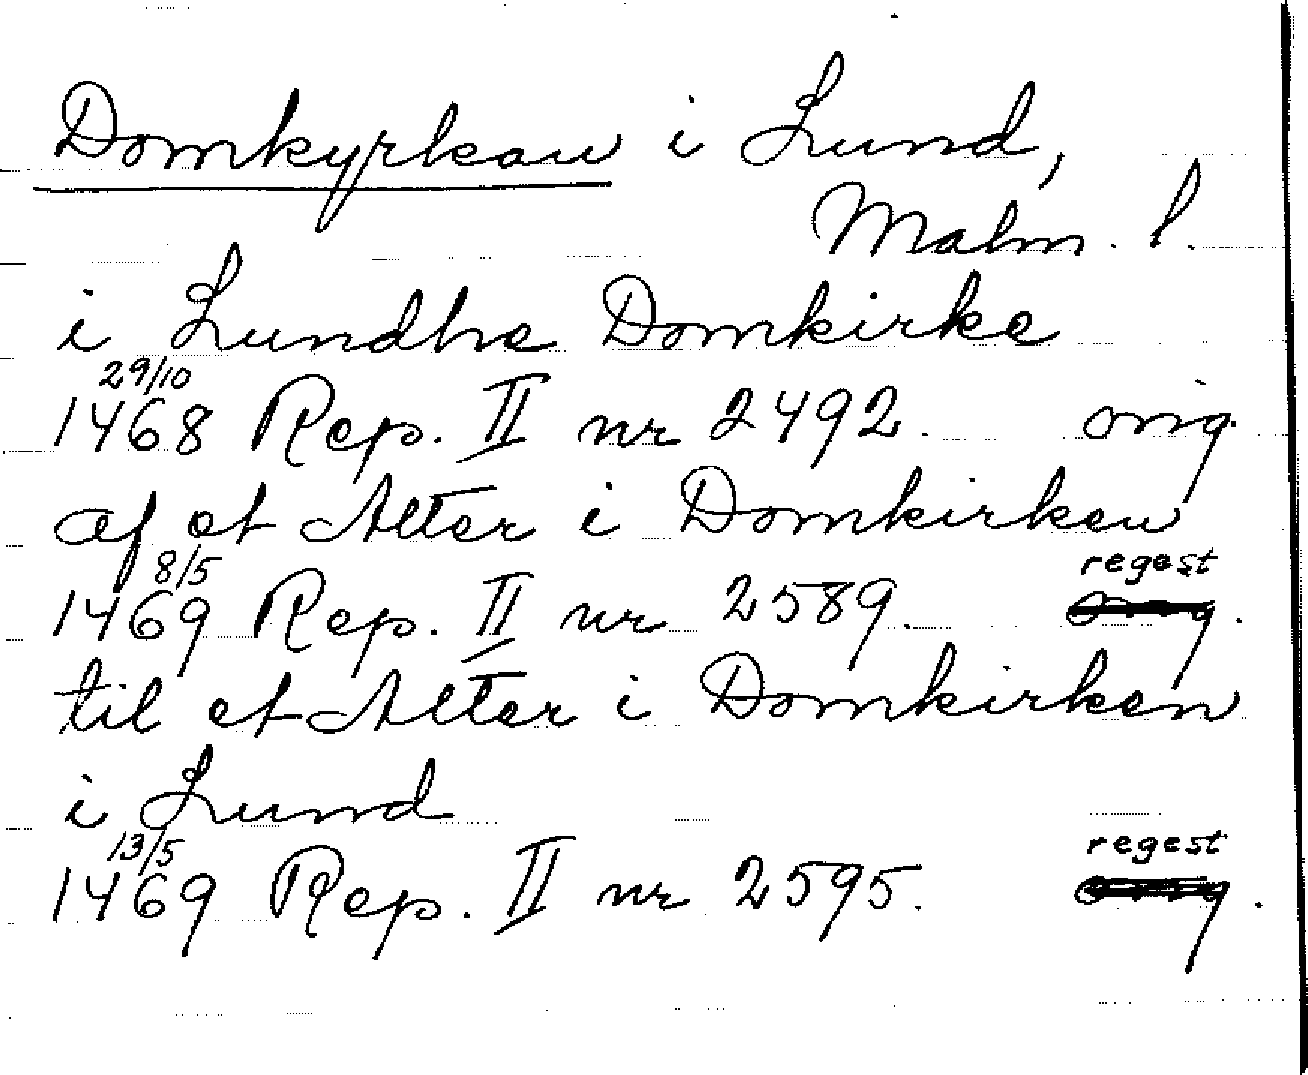 Domkyrkan i Lund,
Malm. l.
i Lundhe Domkirke
29/10
1468 Rep. II nr 2492. orig.
af et Alter i Domkirken
8/5 regest
1469 Rep. II nr 2589. orig.
til et Alter i Domkirken
i Lund
13/5 regest
1469 Rep. II nr 2595. orig.